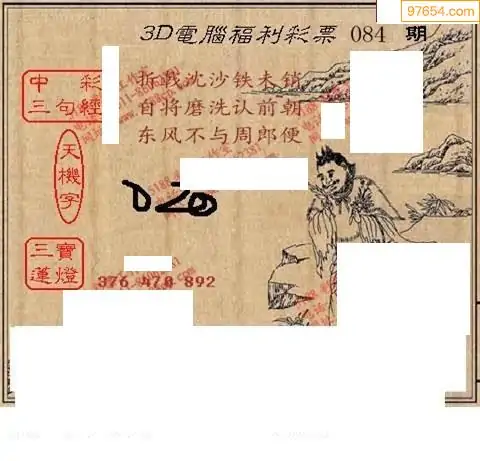 97654.com
3D電腦福利彩票 084 期
中彩
三句經
拆戟沈沙铁未销
自将磨洗认前朝
东风不与周郎便
天機字
020
三寶
蓮燈
376 470 892